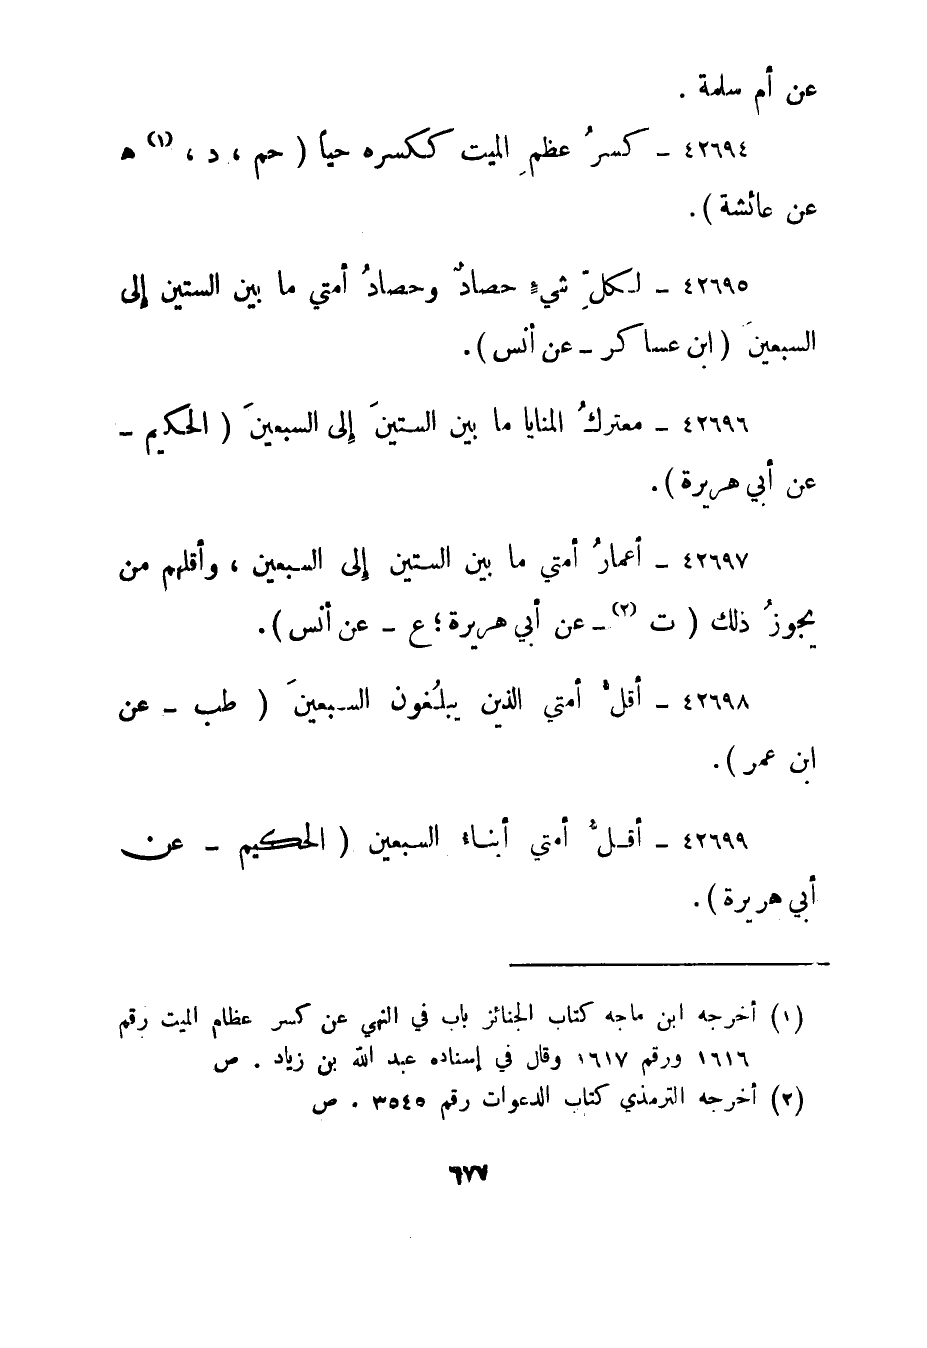 عن أم سلمة .
٤٢٦٩٤ ــ كسرُ عظمِ الميت ككسره حياً ( حم ، د ، (١) ه
عن عائشة ) .
٤٢٦٩٥ ــ لكلِّ شيءٍ حصادٌ وحصادُ أمتي ما بين الستين إلى
السبعينَ ( ابن عساكر ــ عن أنس ) .
٤٢٦٩٦ ــ معتركُ المنايا ما بين الستينَ إلى السبعينَ ( الحكيم ــ
عن أبي هريرة ) .
٤٢٦٩٧ ــ أعمارُ أمتي ما بين الستين إلى السبعين ، وأقلهم من
يجوزُ ذلك ( ت (٢) ــ عن أبي هريرة ؛ ع ــ عن أنس ) .
٤٢٦٩٨ ــ أقلُّ أمتي الذين يبلُغون السبعينَ ( طب ــ عن
ابن عمر ) .
٤٢٦٩٩ ــ أقلُّ أمتي أبناء السبعين ( الحكيم ــ عن
أبي هريرة ) .
(١) أخرجه ابن ماجه كتاب الجنائز باب في النهي عن كسر عظام الميت رقم
١٦١٦ ورقم ١٦١٧ وقال في إسناده عبد الله بن زياد . ص
(٢) أخرجه الترمذي كتاب الدعوات رقم ٣٥٤٥ . ص
٦٧٧